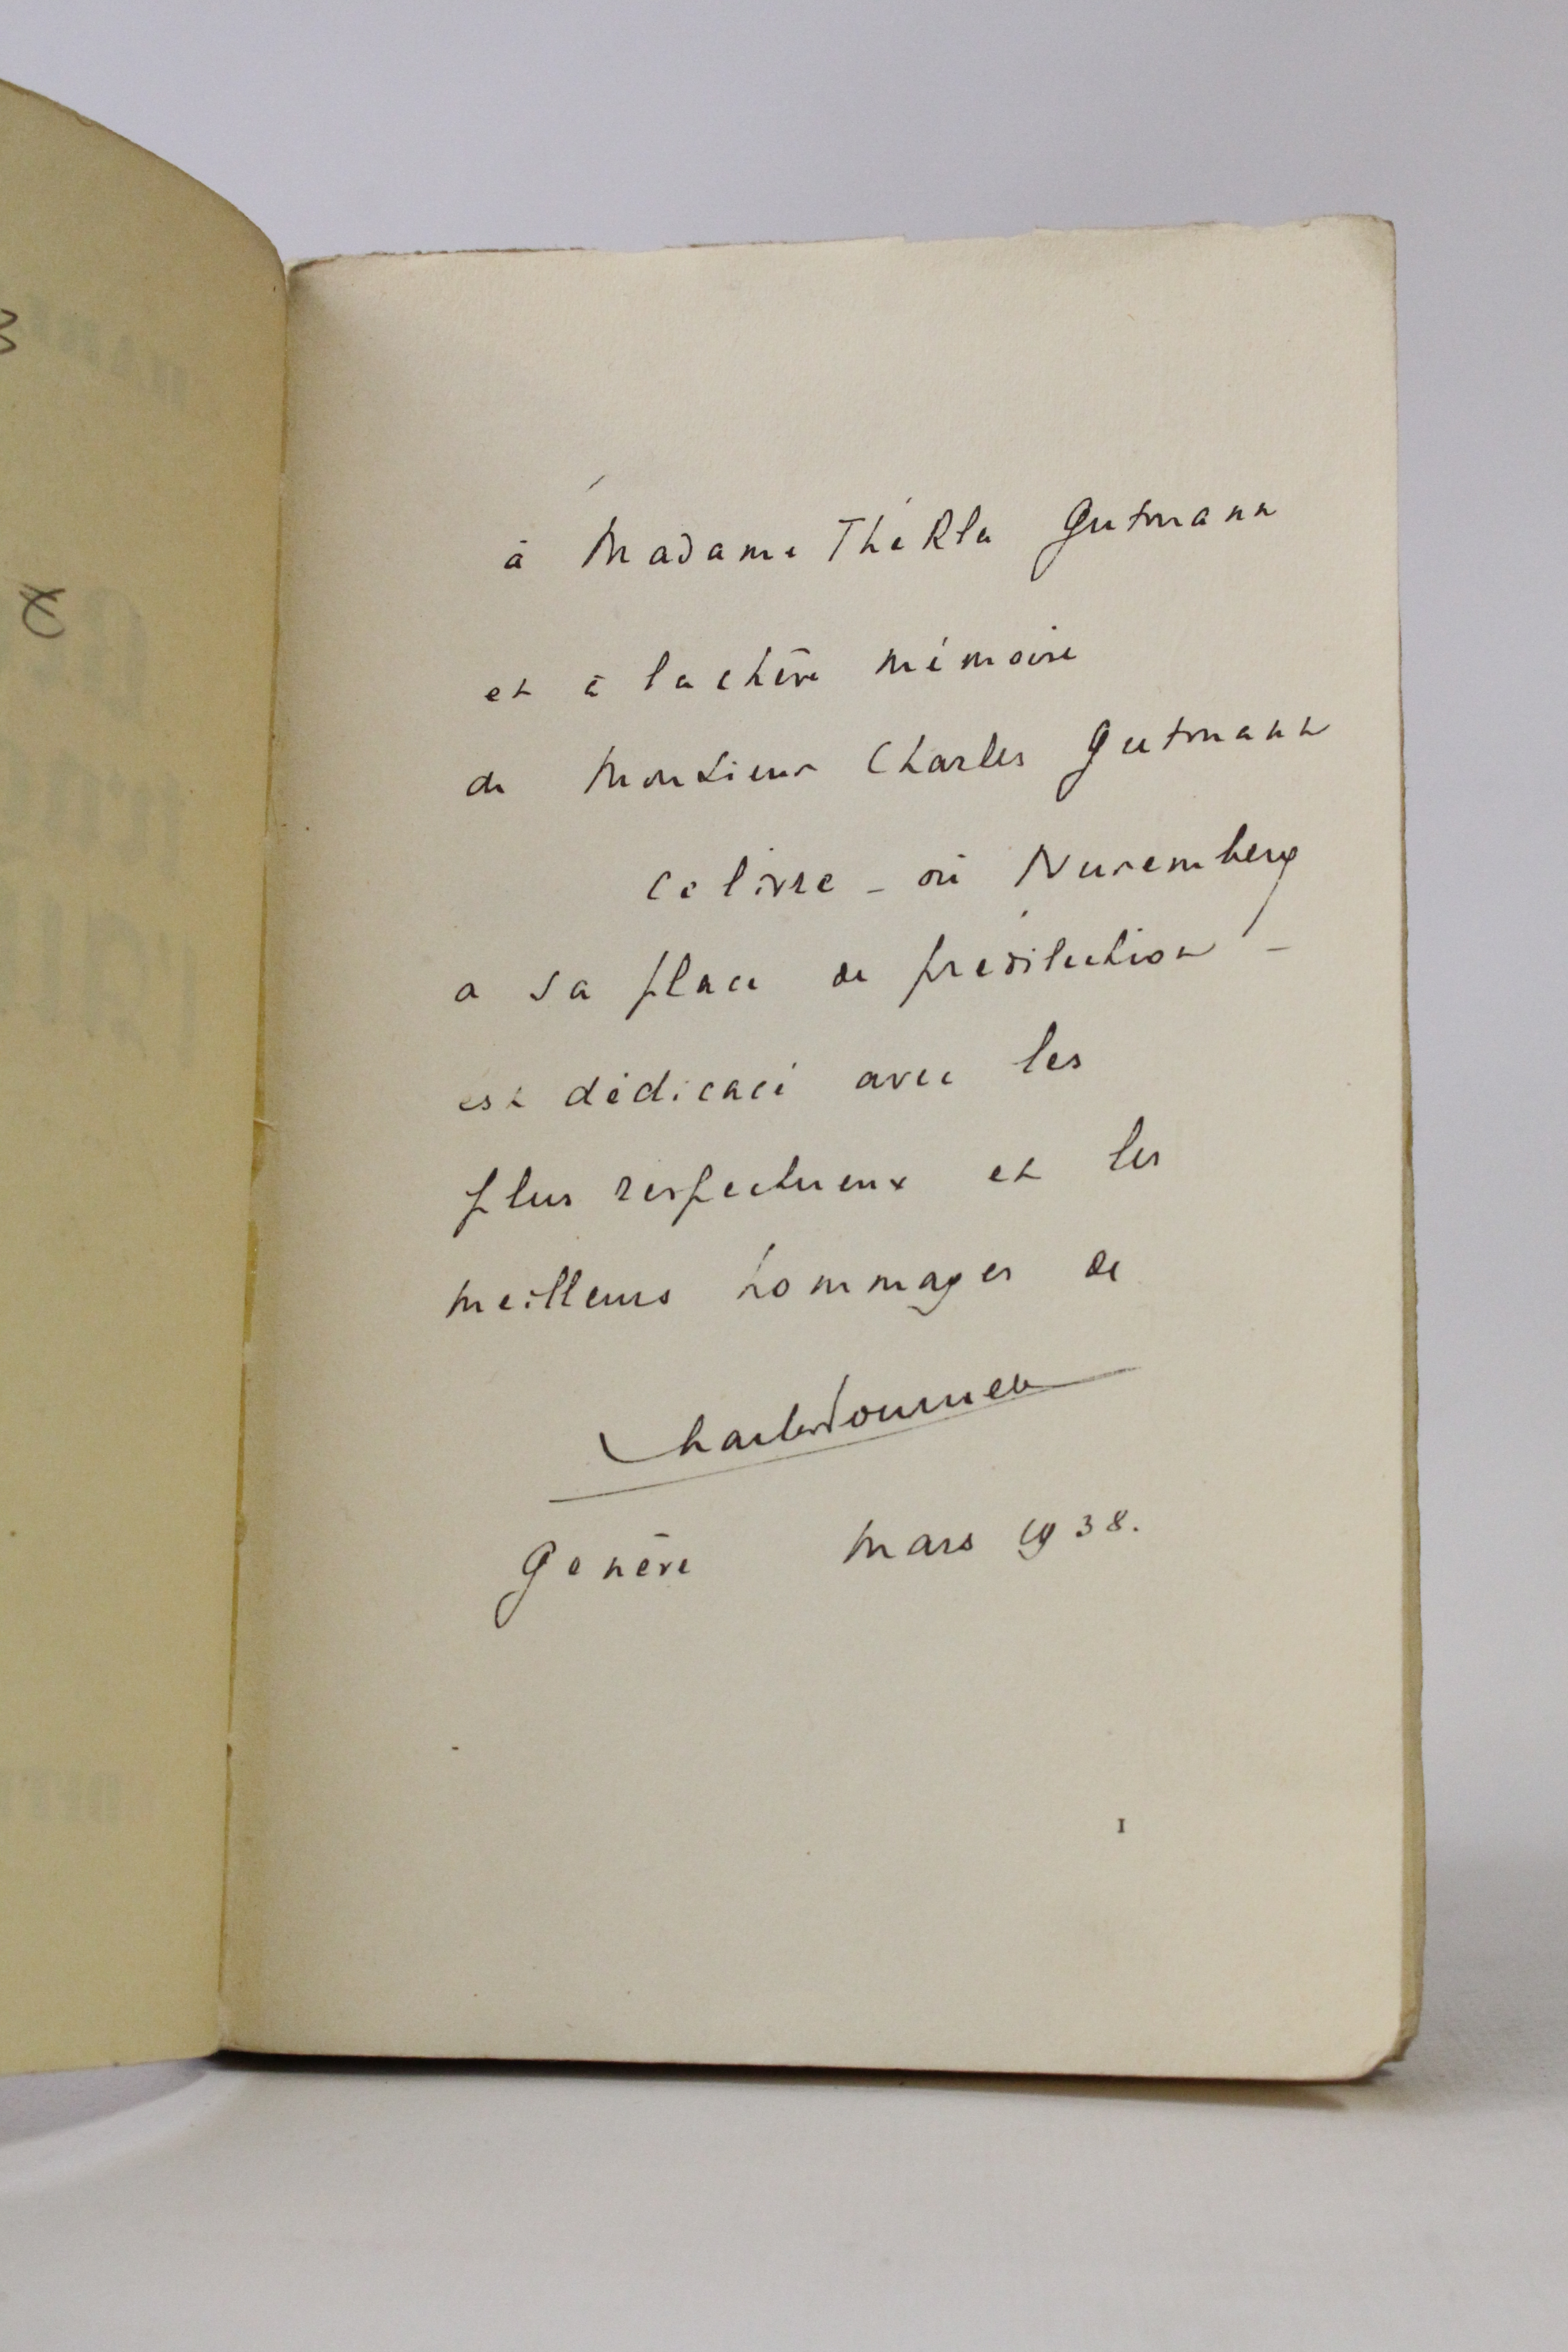 à Madame Thékla Gutmann
et à la chère mémoire
de Monsieur Charles Gutmann
ce livre - où Nuremberg
a sa place de prédilection -
est dédicacé avec les
plus respectueux et les
meilleurs hommages de
Genève Mars 1938.
I